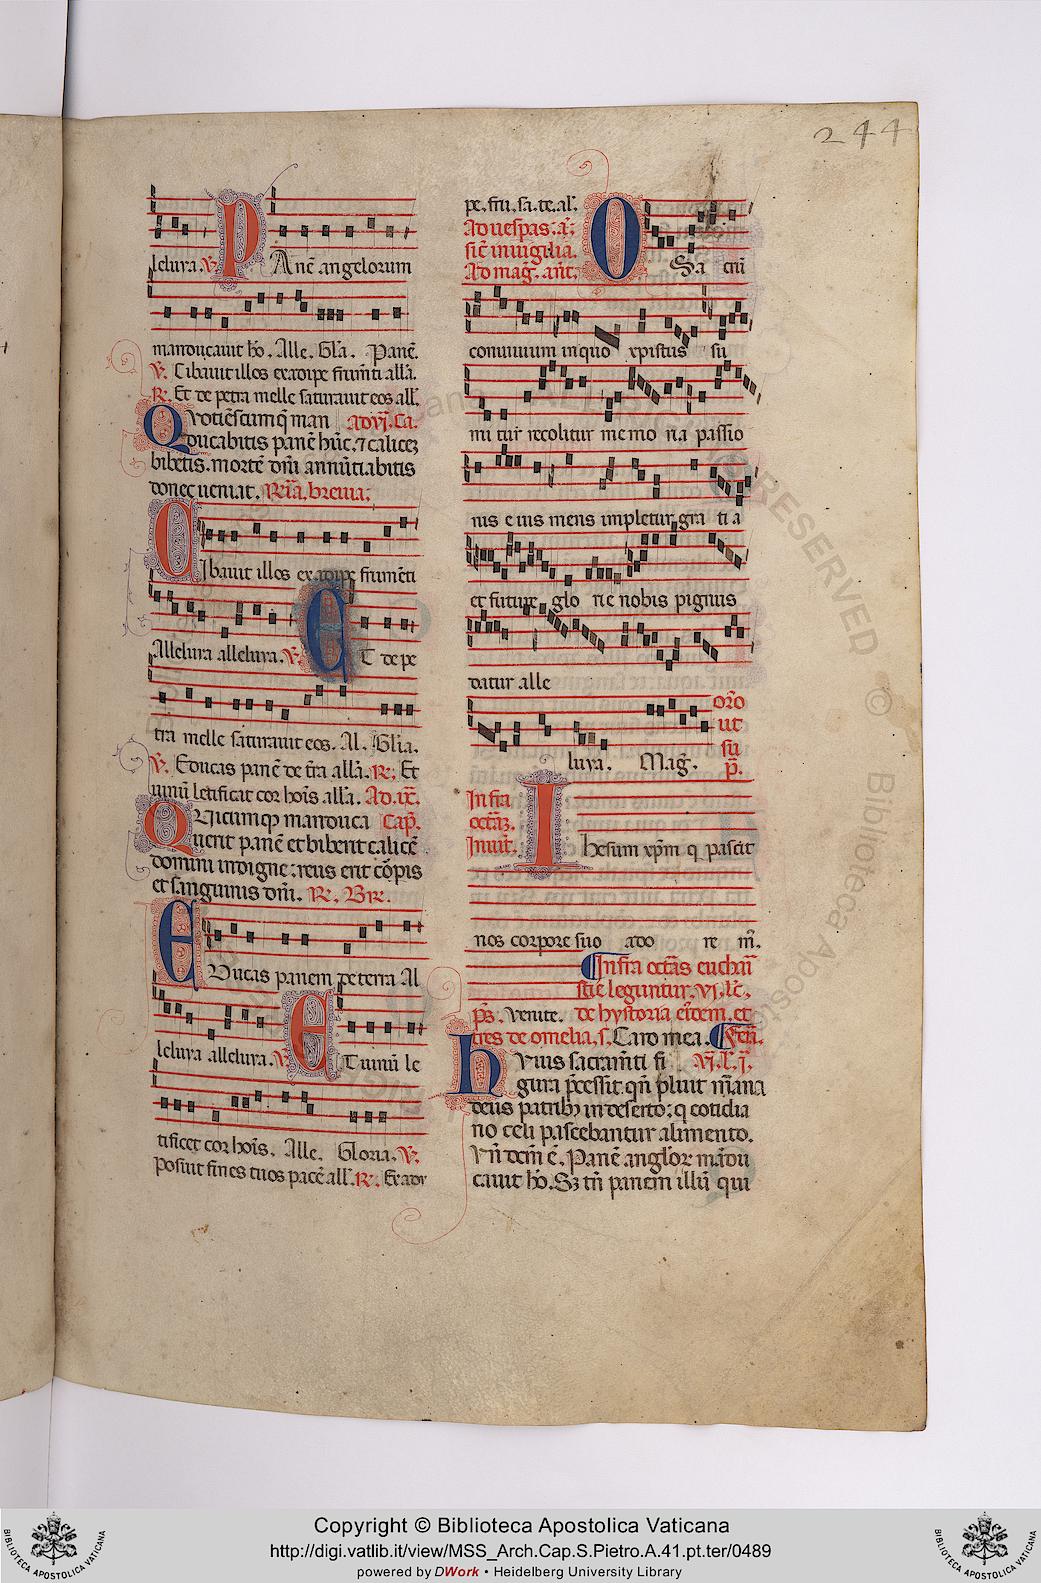 244
leluya. ℣. PAnē angelorum
manducauit hō. Alle. Gl'a. Panē.
℣. Cibauit illos ex adipe frumēti all'a.
℞. Et de petra melle saturauit eos all'.
Quotiēscumq̄ man Ad vj. Ca.
ducabitis panē hūc, ⁊ calicez
bibetis. mortē dn̄i annūtiabitis
donec ueniat. Rn̄a. breuia:
Cibauit illos ex adipe frumēti
Alleluya alleluya. ℣. ET de pe
tra melle saturauit eos. Al. Gl'ia.
℣. Educas panē de t̄ra all'a. ℞. Et
uinū letificat cor hoīs all'a. Ad. ix̄.
Quicumqꝫ manduca Cap̄.
uerit panē et biberit calicē
domini indigne: reus erit cōpis
et sanguinis dn̄i. ℞. Br̄.
EDucas panem de terra Al
leluya alleluya. ℣. ET uinū le
tificet cor hoīs. Alle. Gloria. ℣.
Posuit fines tuos pacē all'. ℞. Ex adi
pe. fru. sa. te. al'.
Ad uesp̄as. ā:
sic̄ in uigilia.
Ad mag̅. ant̄.
O Sa crū
conuiuium in quo xpistus su
mi tur recolitur me mo ria passio
nis e ius mens impletur gra ti a
et future glo rie nobis pignus
datur alle
luya. Mag̅.
or̄o
ut
su
p̄.
Infra
octāz.
Inuit̄.
Ihesum xp̄m q̄ pascit
nos corpore suo ado re m̄.
Infra octās euchari
stie leguntur. vj. lc̄.
p̄s. Venite. de hystoria eidem. et
tres de omelia. s. Caro mea. Fer̄.
Huius sacramēti fi vj. l'. j.
gura p̄cessit. qn̄ pluit māna
deus patribꝫ in deserto: q̄ cotidia
no celi pascebantur alimento.
Vn̄ dcm̄ ē. Panē anglor mādu
cauit hō. Sꝫ tn̄ panem illū qui
Copyright © Biblioteca Apostolica Vaticana
http://digi.vatlib.it/view/MSS_Arch.Cap.S.Pietro.A.41.pt.ter/0489
powered by DWork • Heidelberg University Library
BIBLIOTECA APOSTOLICA VATICANA
BIBLIOTECA APOSTOLICA VATICANA